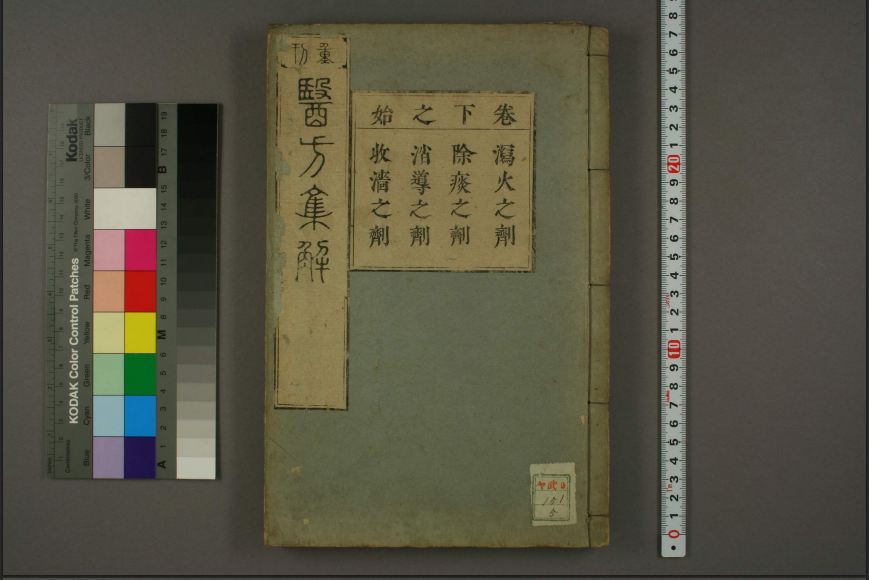 重刊
醫方集解
卷下之始
瀉火之劑
除痰之劑
消導之劑
收濇之劑
151
5
Kodak
KODAK Color Control Patches
© The Tiffen Company, 2000
Blue Cyan Green Yellow Red Magenta White 3/Color Black
Centimetres
A 1 2 3 4 5 6 M 8 9 10 11 12 13 14 15 B 17 18 19
0 1 2 3 4 5 6 7 8 9 10 1 2 3 4 5 6 7 8 9 20 1 2 3 4 5 6 7 8